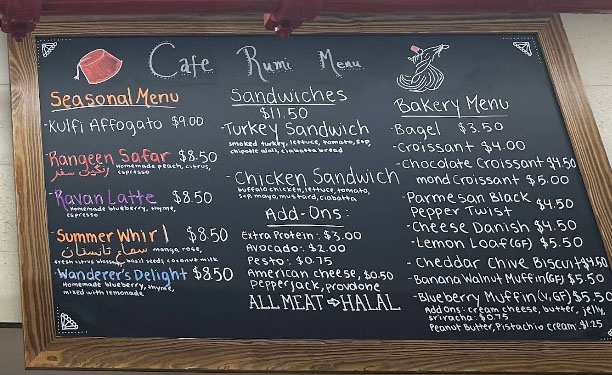 Cafe Rumi Menu
Seasonal Menu
-Kulfi Affogato $9.00
-Rangeen Safar $8.50
رنگین سفر Homemade peach, citrus,
espresso
-Ravan Latte $8.50
Homemade blueberry, thyme,
espresso
-Summer Whirl $8.50
mango, rose,
fresh citrus blossom, basil seeds, coconut milk
-Wanderer's Delight $8.50
Homemade blueberry, thyme,
mixed with lemonade
Sandwiches
$11.50
-Turkey Sandwich
smoked turkey, lettuce, tomato,
chipotle aioli, ciabatta bread
-Chicken Sandwich
buffalo chicken, lettuce, tomato,
mayo, mustard, ciabatta
Add-Ons:
Extra Protein: $3.00
Avocado: $2.00
Pesto: $0.75
American cheese, $0.50
Pepperjack, provolone
ALL MEAT ⇨ HALAL
Bakery Menu
-Bagel $3.50
-Croissant $4.00
-Chocolate Croissant $4.50
mond Croissant $5.00
-Parmesan Black $4.50
Pepper Twist
-Cheese Danish $4.50
-Lemon Loaf (GF) $5.50
-Cheddar Chive Biscuit $4.50
-Banana Walnut Muffin (GF) $5.50
-Blueberry Muffin (V, GF) $5.50
Add Ons: cream cheese, butter, jelly,
sriracha: $0.75
Peanut Butter, Pistachio cream: $1.25